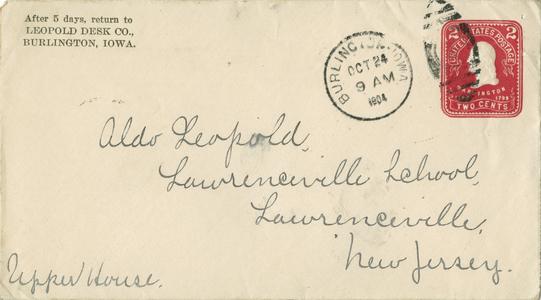 After 5 days, return to
LEOPOLD DESK CO.,
BURLINGTON, IOWA.
BURLINGTON, IOWA
OCT 24
9 AM
1904
2 UNITED STATES POSTAGE 2
WASHINGTON
1799
TWO CENTS
Aldo Leopold,
Lawrenceville School,
Lawrenceville,
New Jersey.
Upper House.